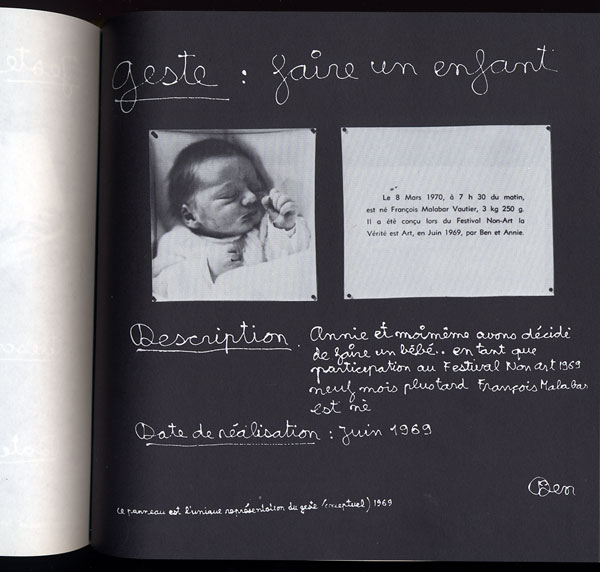 geste : faire un enfant
Le 8 Mars 1970, à 7 h 30 du matin,
est né François Malabar Vautier, 3 kg 250 g.
Il a été conçu lors du Festival Non-Art la
Vérité est Art, en Juin 1969, par Ben et Annie.
Description. Annie et moimème avons décidé
de faire un bébé.. en tant que
participation au Festival Non art 1969
neuf mois plustard François Malabar
est né
Date de réalisation : Juin 1969
Ben
ce panneau est l'unique représentation du geste (conceptuel) 1969